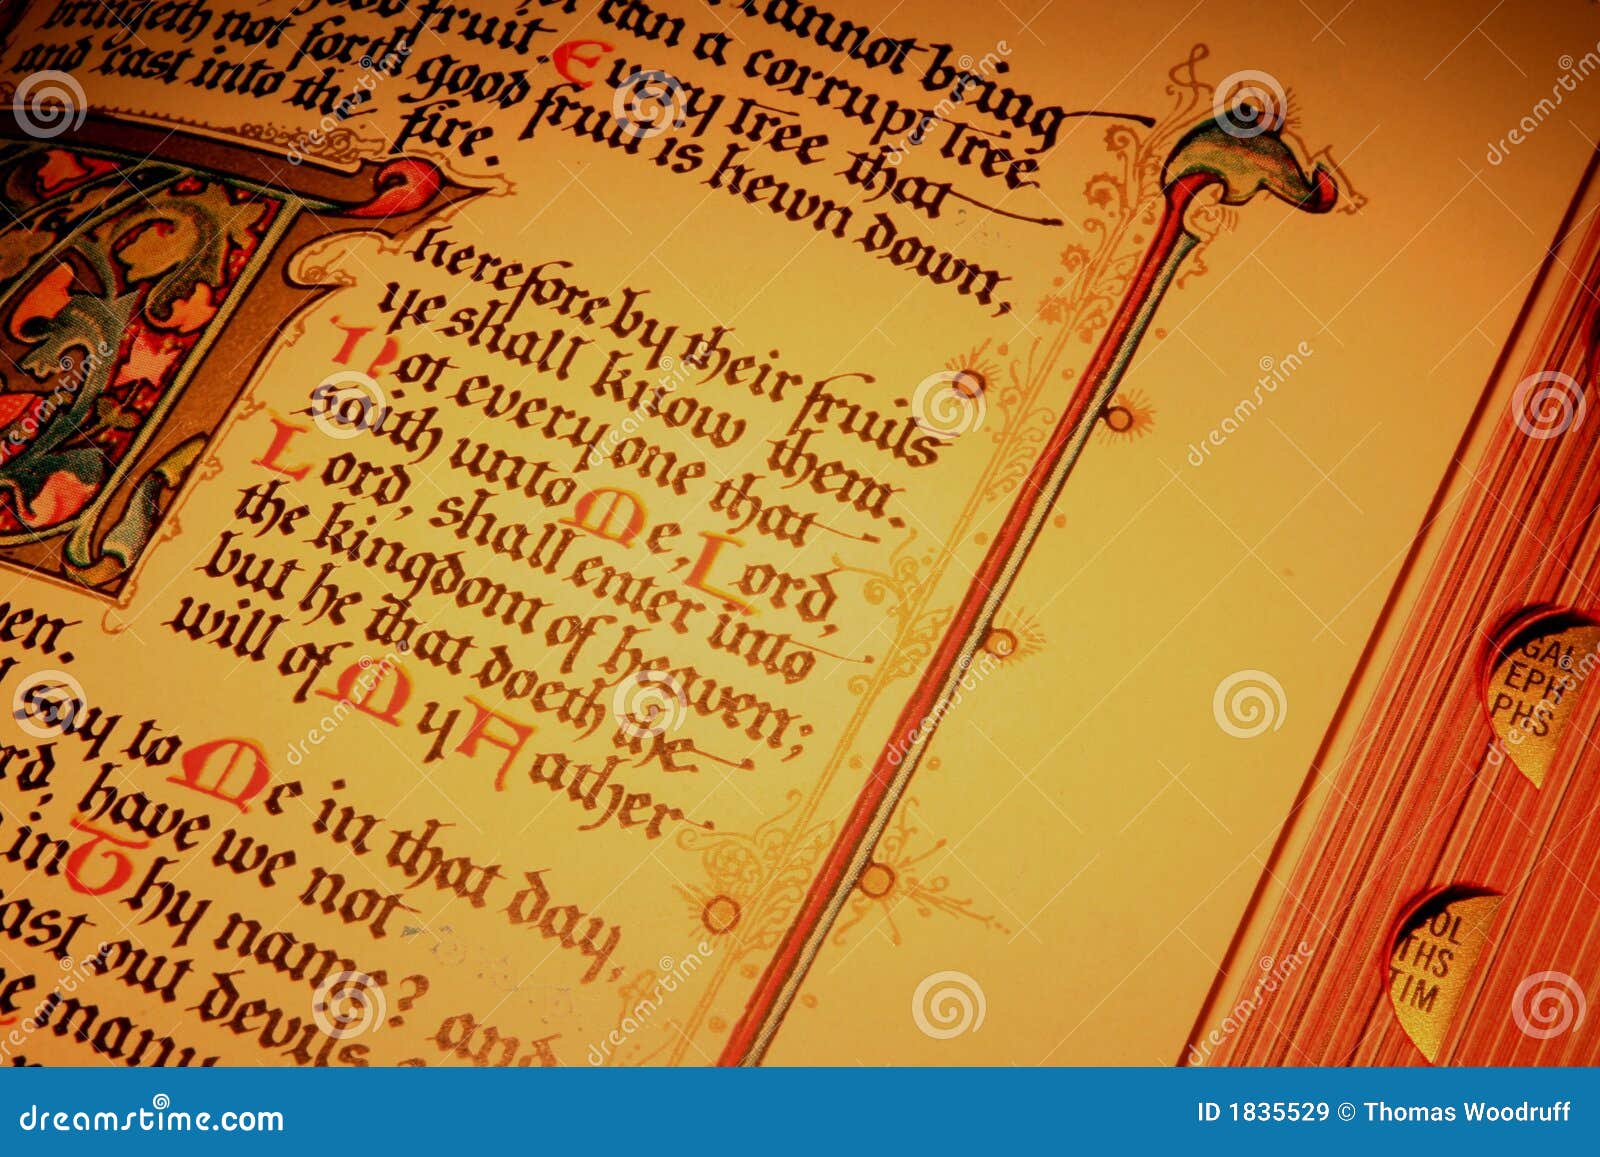 cannot bring
good fruit can a corrupt tree
bringeth not forth good fruit Every tree that
and cast into the fire. fruit is hewn down,
herefore by their fruits
ye shall know them.
Not every one that
saith unto Me, Lord,
Lord, shall enter into
the kingdom of heaven;
but he that doeth the
will of My Father
ven.
say to Me in that day,
ord, have we not
in Thy name? and
cast out devils
many
GAL
EPH
PHS
COL
THS
TIM
dreamstime.com
ID 1835529 © Thomas Woodruff